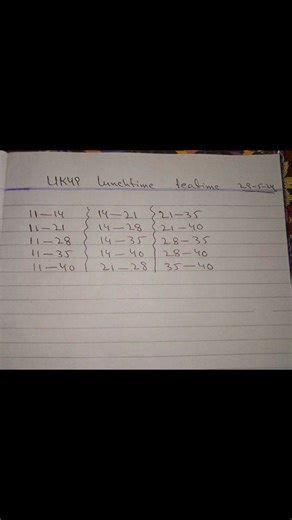 UK49 Lunchtime teatime 28-5-24
11-14 14-21 21-35
11-21 14-28 21-40
11-28 14-35 28-35
11-35 14-40 28-40
11-40 21-28 35-40